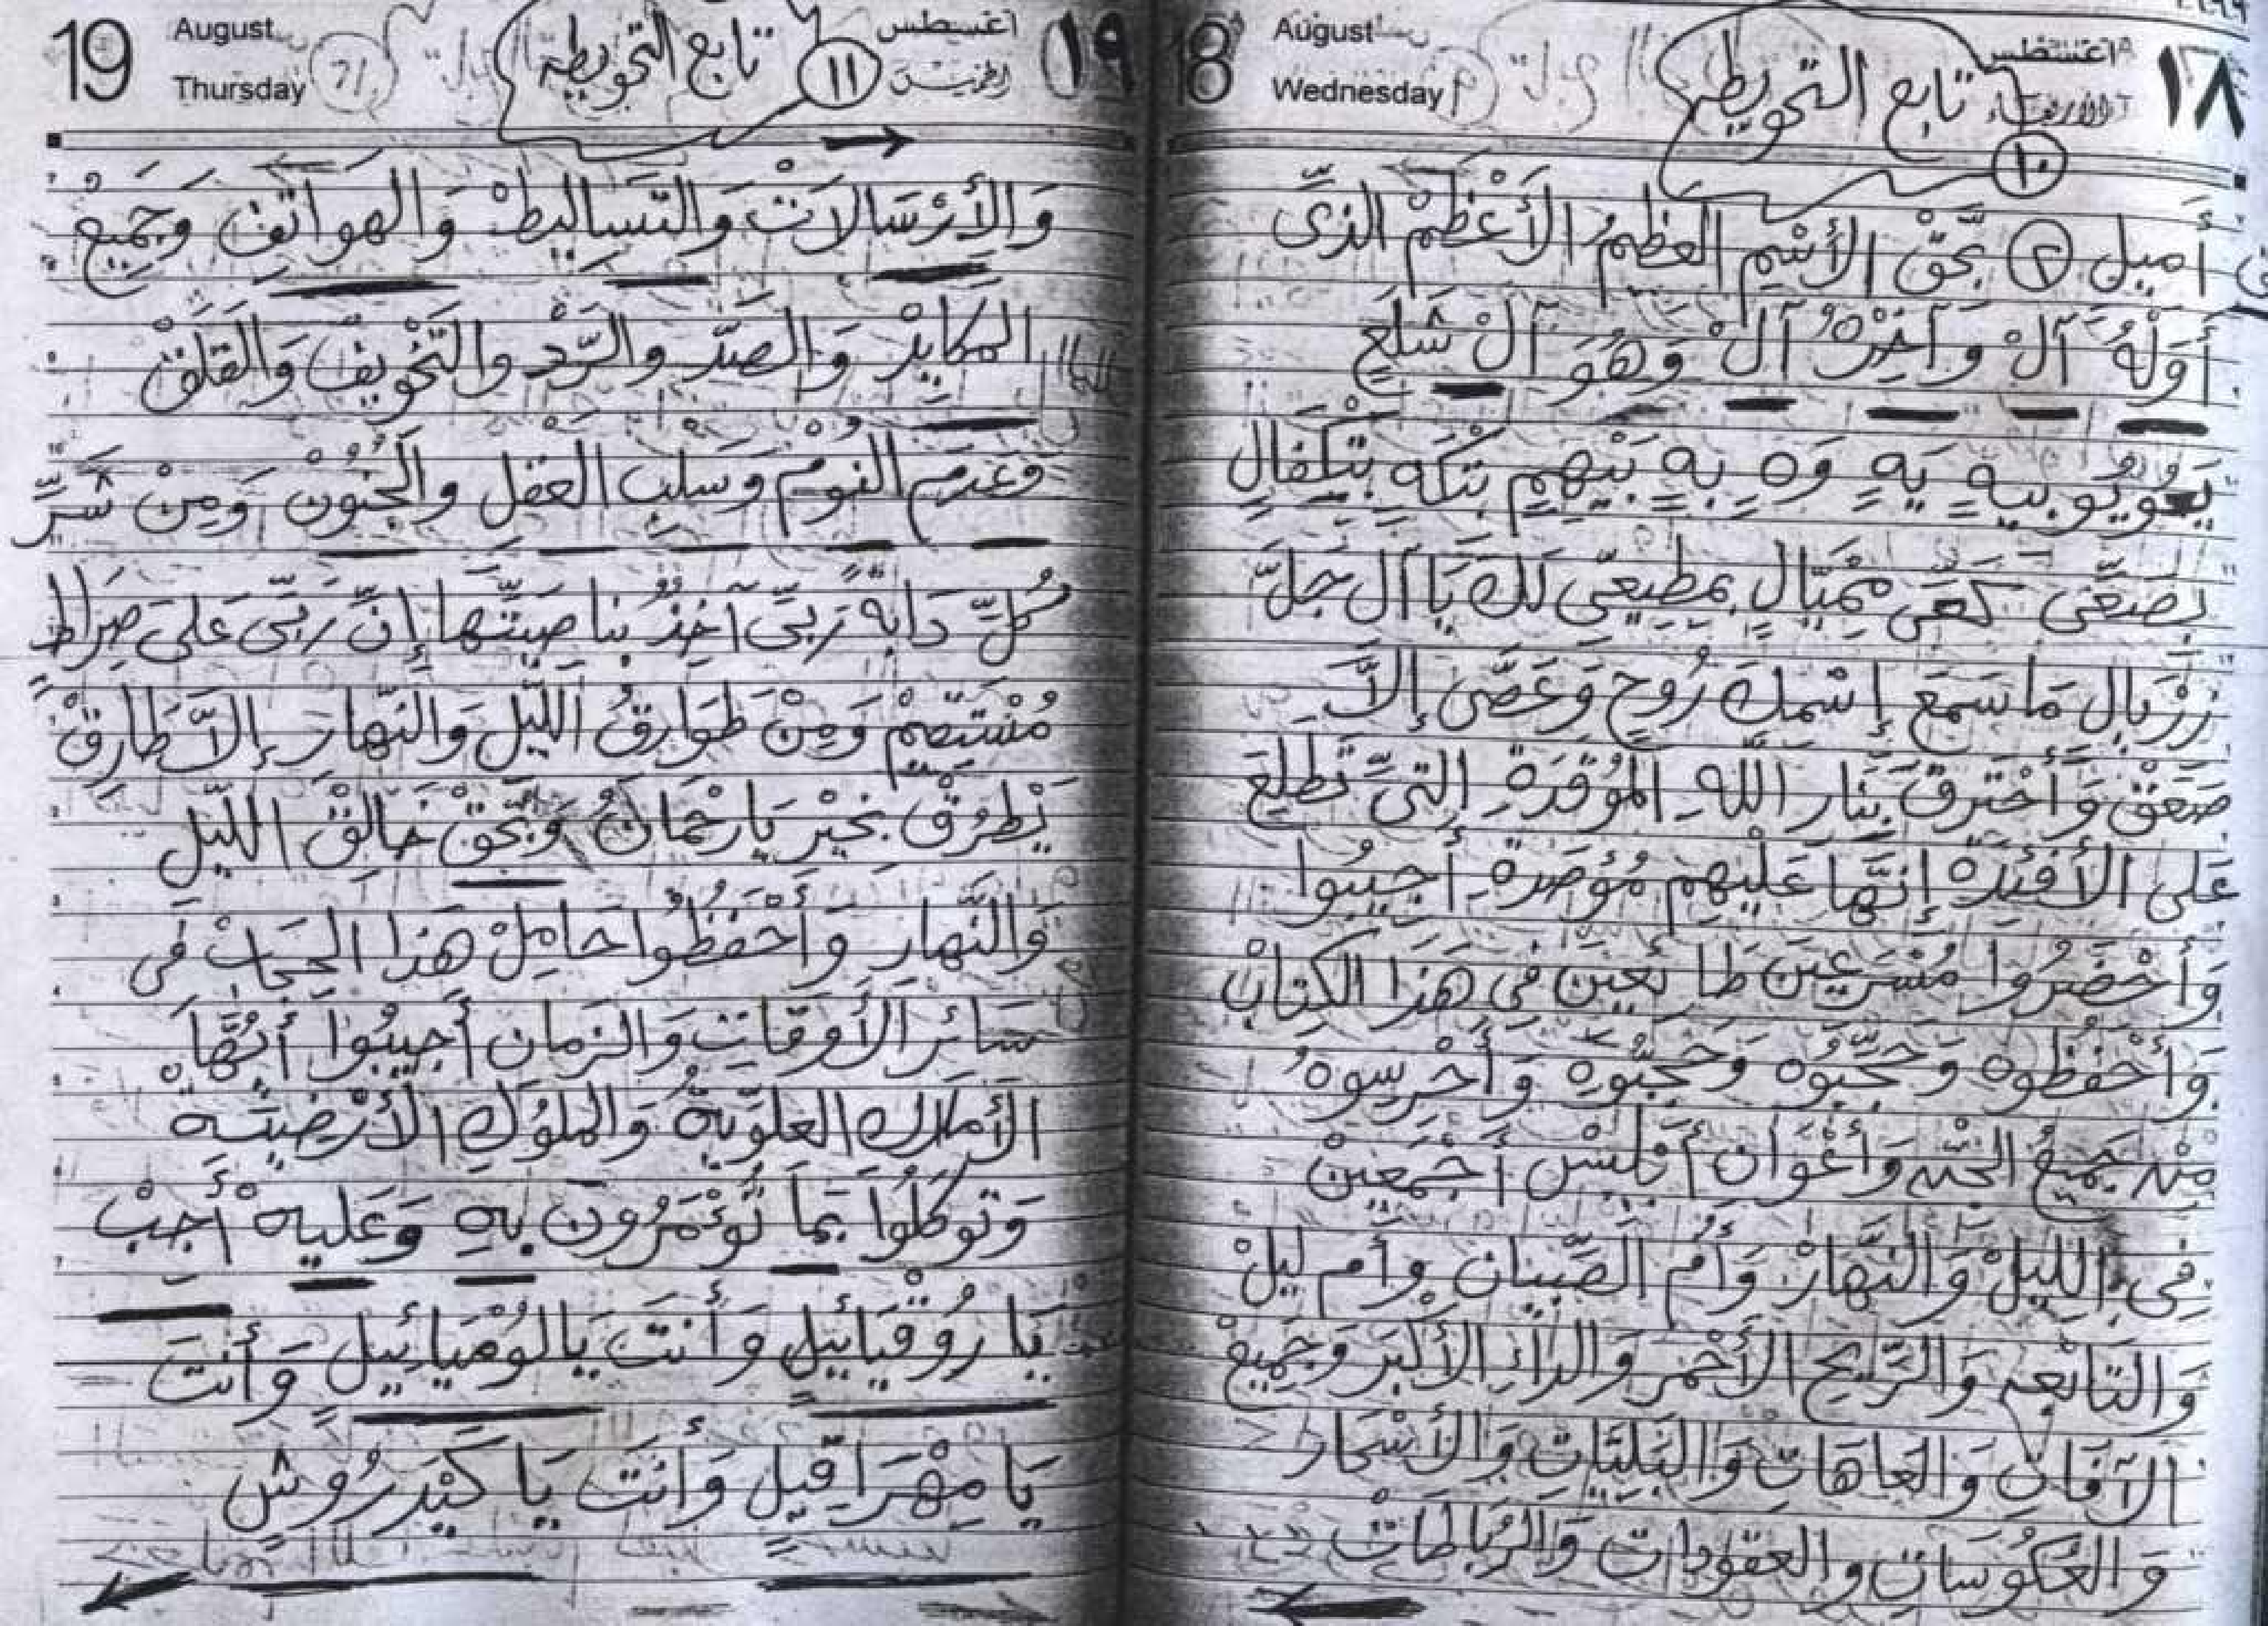 ١٨
أغسطس
الأربعاء
August
Wednesday
18
تابع التحويطه
١٠
أميل ٢ بحَقْ الأسْمِ العظيمُ الأَعْظَمْ الذىِّ
أَوَلهُ آلْ وَآخِرْهُ آلْ وَهُوَ آلْ شَلَعِ
يَعُويُوبيهٍ يَهٍ وَهٍ بِهٍ بَتِهِمٍ بَتكَهٍ بَتِكفَالٍ
بِصَعِّى كَعَى مِمْيَالٍ بمَطِيعِى لَكَ يَا آل جَلَّ
زَرْيَالِ مَا سَمعَ إسْمكَ رُوحٍ وَعَصَّى إلاَّ
صَعَقْ وَأَحْتَرقَ بِنَار اللَّهِ المُوُقَدَةِ التىِّ تَطَلِعَ
عَلى الأَفئِدَة إِنَّهَا عَليْهِم مُؤصَدة أَجيبُوا
وَأَحْضَرُوا مُسْرَعِينَ طَائعِينَ فى هَذا الكِتابْ
وَأَحْفَظُوهْ وَحَجِّبُوهْ وَحَجِّبُوهْ وَأَحْرِسِوهُ
مِنْ جَمِيعُ الجِنْ وَأَعْوَان أَبْلِيسْ أَجْمَعِينْ
فِى اللّيلْ وَالنَّهَارْ وَأمُ الصِّبيَانْ وَأم ليلْ
وَالتَابْعِه وَالرِّيحِ الأَحْمَر وَالدَاءِ الأَكْبَرَ وَجَمِيعْ
الآفَاتِ وَالعَاهَاتِ وَالبَلِيَاتِ وَالأَسْحَار
وَالعَكُوسَاتِ والعقودَات وَالرِّبَاطَاتْ
١٩
أغسطس
الخميس
August
Thursday
19
تابع التحويطه
١١
وَالأِرْسَالاَتْ وَالتَسَالِيطْ وَالهوَاتِفِ وَجَمِيعْ
المكَايِدْ وَالصَدّ والرَّدْ والتَخْوِيفْ وَالقَلقْ
وَعَدَم النوُمْ وَسَلبِ العَقلِ وَالجُنُونْ وَمِنْ شَرِّ
كُلِّ دَابةٍ رَبىِّ آخِذُ بنا صِيَتهَا إنَّ رَبىِّ عَلىَ صِرَاطٍ
مُسْتَقِمْ وَمِنْ طَوَارِقُ اللَّيْلِ وَالنَّهَارَ إلاَّ طَارِقْ
يَطرُقْ بِخَيْرٍ يَارَحْمَانُ وَبحَقْ خَالِقْ اللّيل
وَالنَّهار وَأَحْفَظُوا حَامِلْ هَذا الحِجَابْ فى
سَائِر الأَوقَاتِ وَالزمَان أَجِيبُوا أَيُّهَا
الأَملاَك العلوّيةْ وَالملُوكِ الأَرْضِيَةْ
وَتَوكَلُوا بمَا تُؤْمَرُونَ بِهِ وَعَليهْ أَجِبْ
يَا رُوُقيَائيلٍ وَأَنتَ يَا لُوُميَائِيلٍ وَأَنتَ
يَا مِهْرَاقيلٍ وَأَنتَ يَا كَيْدَرُوُشٍ